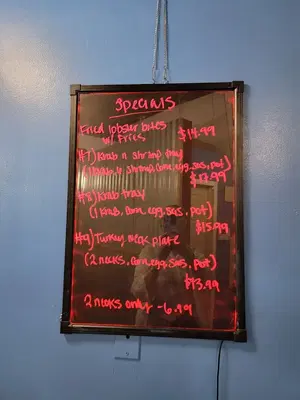 Specials
Fried lobster bites
w/ Fries $14.99
#7) Krab n shrimp tray
(1 Krab, 6 shrimp, Corn, egg, sas, pot)
$17.99
#8) Krab tray
(1 Krab, Corn, egg, sas, pot)
$15.99
#9) Turkey neck plate
(2 necks, Corn, egg, sas, pot)
$13.99
2 necks only - 6.99